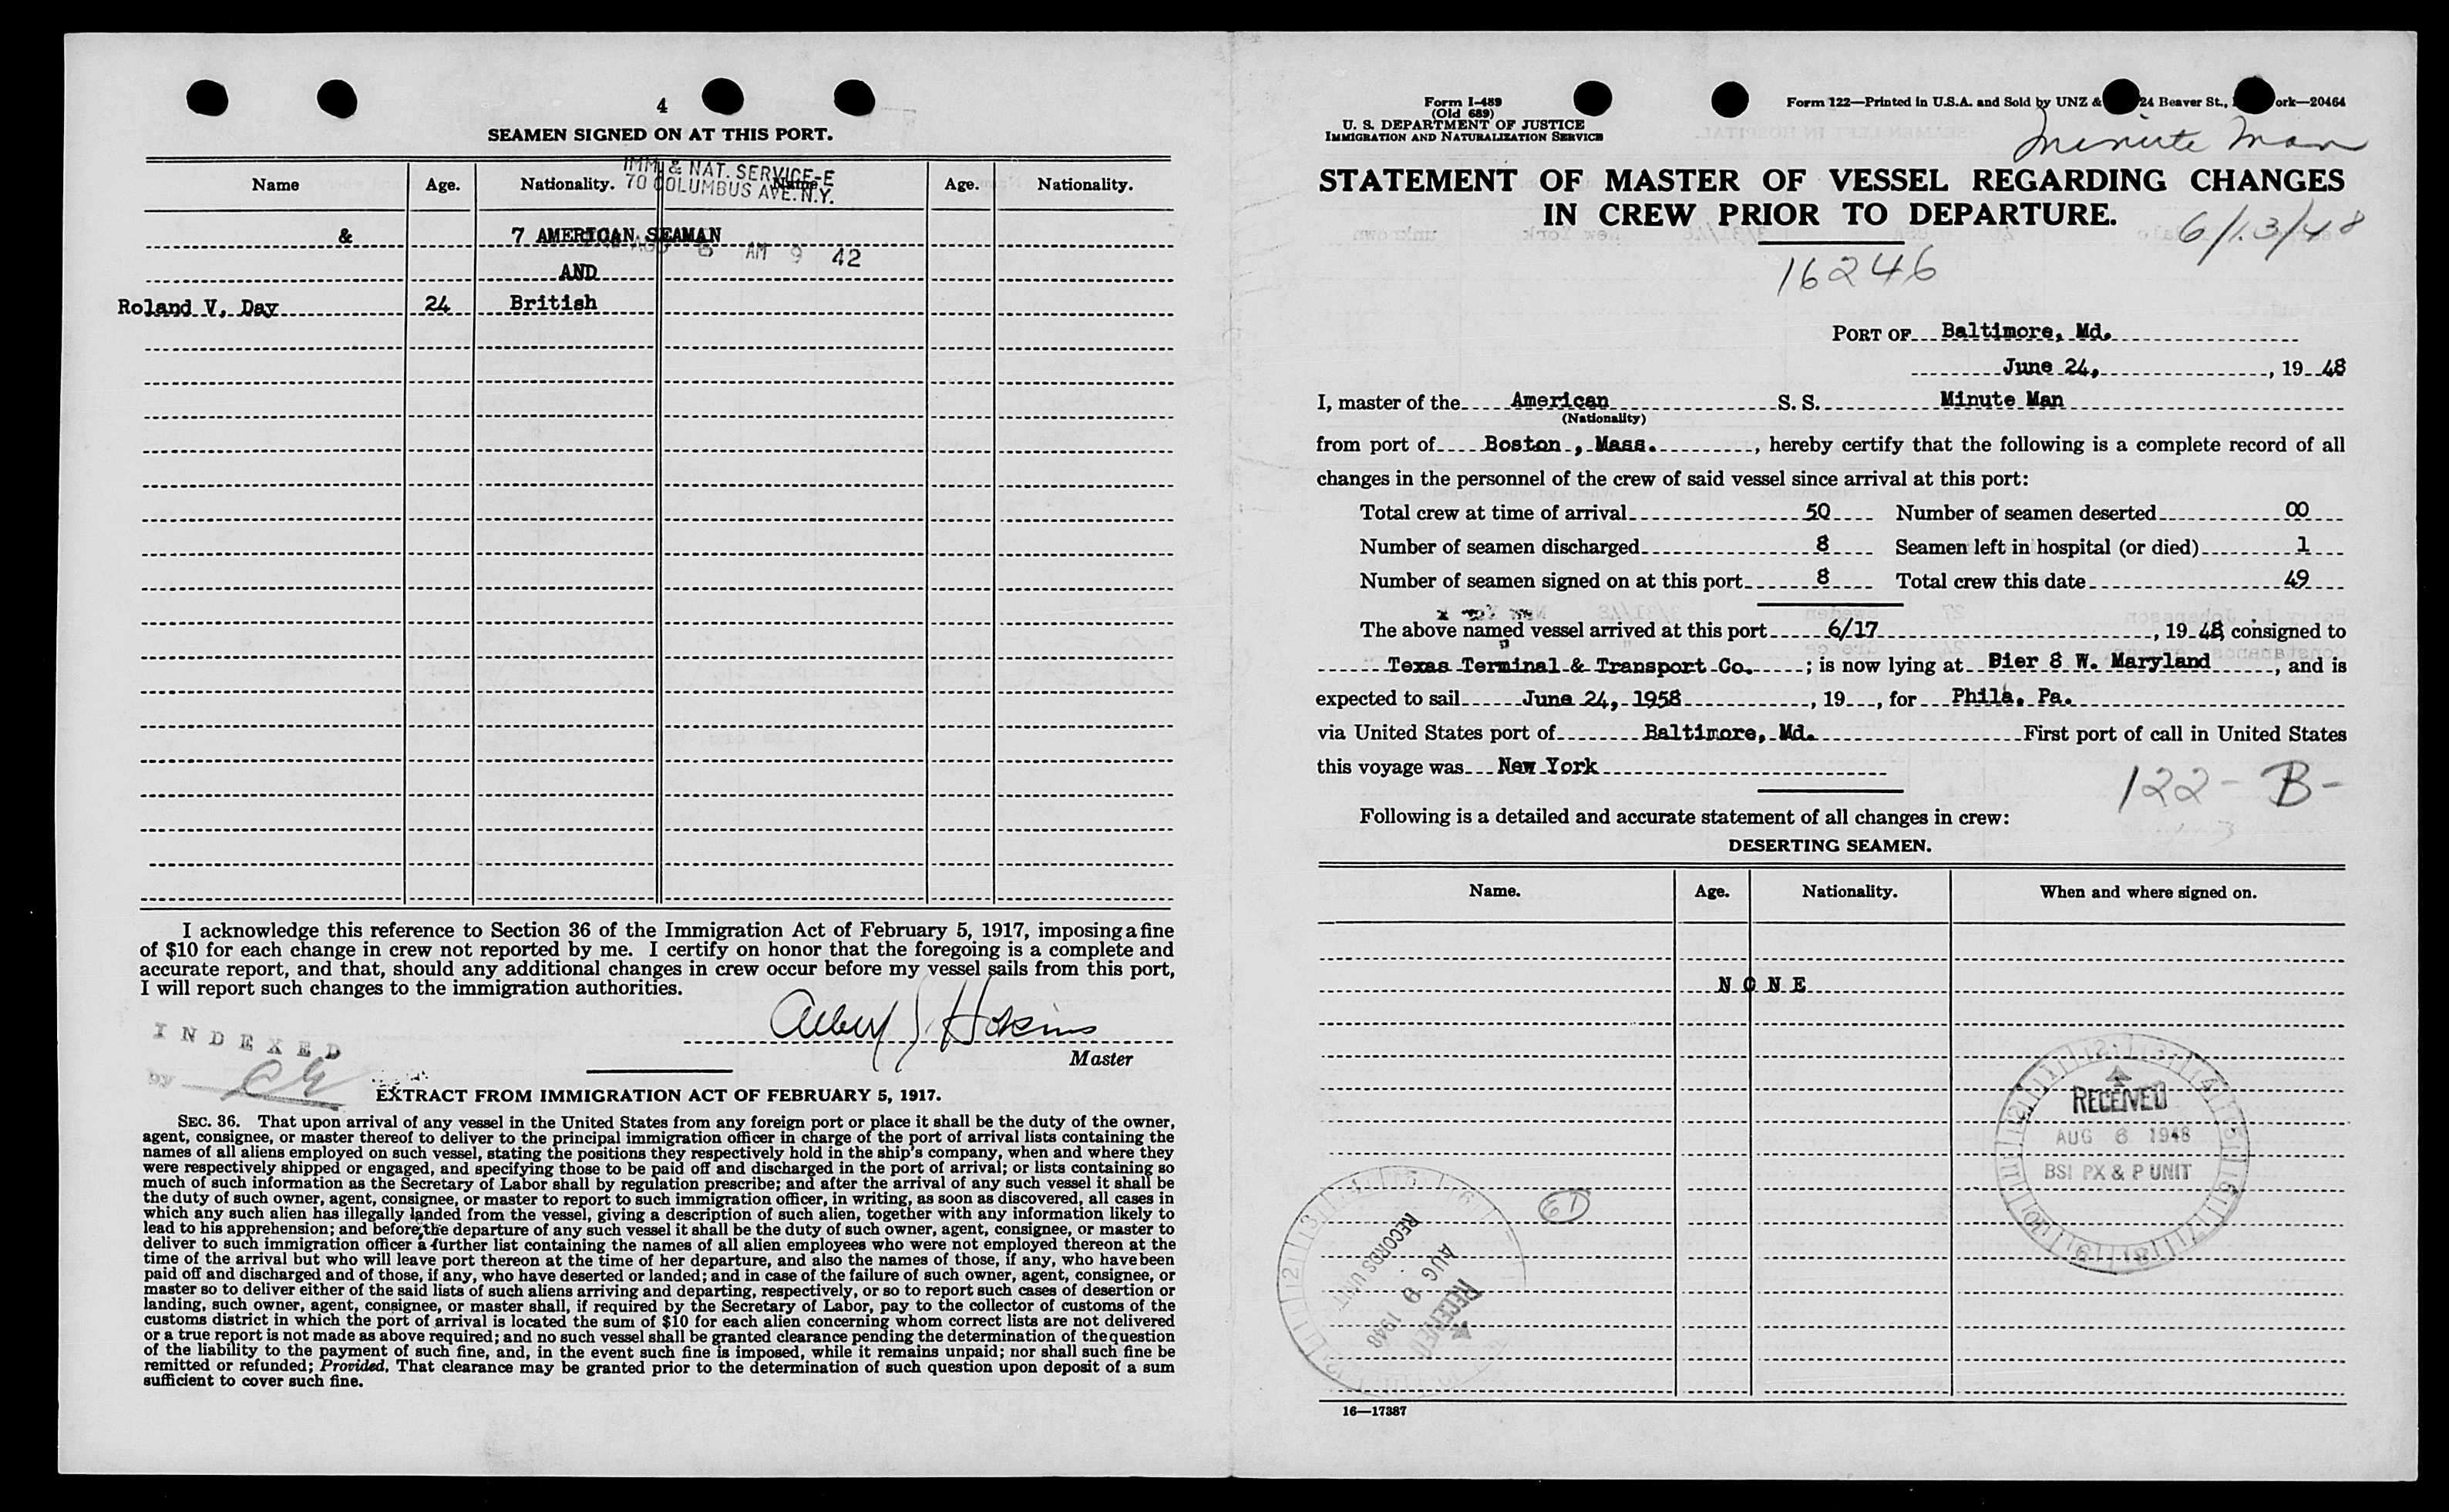 4
SEAMEN SIGNED ON AT THIS PORT.
IMM & NAT. SERVICE-E
70 COLUMBUS AVE. N.Y.
Name Age. Nationality. Name Age. Nationality.
& 7 AMERICAN SEAMAN
AUG 6 AM 9 42
AND
Roland V. Day 24 British
I acknowledge this reference to Section 36 of the Immigration Act of February 5, 1917, imposing a fine
of $10 for each change in crew not reported by me. I certify on honor that the foregoing is a complete and
accurate report, and that, should any additional changes in crew occur before my vessel sails from this port,
I will report such changes to the immigration authorities.
Albert J Hokins
Master
INDEXED
by CG
EXTRACT FROM IMMIGRATION ACT OF FEBRUARY 5, 1917.
SEC. 36. That upon arrival of any vessel in the United States from any foreign port or place it shall be the duty of the owner,
agent, consignee, or master thereof to deliver to the principal immigration officer in charge of the port of arrival lists containing the
names of all aliens employed on such vessel, stating the positions they respectively hold in the ship's company, when and where they
were respectively shipped or engaged, and specifying those to be paid off and discharged in the port of arrival; or lists containing so
much of such information as the Secretary of Labor shall by regulation prescribe; and after the arrival of any such vessel it shall be
the duty of such owner, agent, consignee, or master to report to such immigration officer, in writing, as soon as discovered, all cases in
which any such alien has illegally landed from the vessel, giving a description of such alien, together with any information likely to
lead to his apprehension; and before the departure of any such vessel it shall be the duty of such owner, agent, consignee, or master to
deliver to such immigration officer a further list containing the names of all alien employees who were not employed thereon at the
time of the arrival but who will leave port thereon at the time of her departure, and also the names of those, if any, who have been
paid off and discharged and of those, if any, who have deserted or landed; and in case of the failure of such owner, agent, consignee, or
master so to deliver either of the said lists of such aliens arriving and departing, respectively, or so to report such cases of desertion or
landing, such owner, agent, consignee, or master shall, if required by the Secretary of Labor, pay to the collector of customs of the
customs district in which the port of arrival is located the sum of $10 for each alien concerning whom correct lists are not delivered
or a true report is not made as above required; and no such vessel shall be granted clearance pending the determination of the question
of the liability to the payment of such fine, and, in the event such fine is imposed, while it remains unpaid; nor shall such fine be
remitted or refunded; Provided, That clearance may be granted prior to the determination of such question upon deposit of a sum
sufficient to cover such fine.
Form I-489
(Old 689)
U. S. DEPARTMENT OF JUSTICE
IMMIGRATION AND NATURALIZATION SERVICE
Form 122—Printed in U.S.A. and Sold by UNZ & 24 Beaver St., ork—20464
Minute Man
STATEMENT OF MASTER OF VESSEL REGARDING CHANGES
IN CREW PRIOR TO DEPARTURE.
6/13/48
16246
PORT OF Baltimore, Md.
June 24, , 19 48
I, master of the American S. S. Minute Man
(Nationality)
from port of Boston , Mass. , hereby certify that the following is a complete record of all
changes in the personnel of the crew of said vessel since arrival at this port:
Total crew at time of arrival 50 Number of seamen deserted 00
Number of seamen discharged 8 Seamen left in hospital (or died) 1
Number of seamen signed on at this port 8 Total crew this date 49
The above named vessel arrived at this port 6/17 , 19 48, consigned to
Texas Terminal & Transport Co. ; is now lying at Pier 8 W. Maryland , and is
expected to sail June 24, 1958 , 19 , for Phila. Pa.
via United States port of Baltimore, Md. First port of call in United States
this voyage was New York
122- B-
Following is a detailed and accurate statement of all changes in crew:
DESERTING SEAMEN.
Name. Age. Nationality. When and where signed on.
N O N E
RECEIVED
AUG 6 1948
BSI PX & P UNIT
67
RECORDS UNIT
AUG 9 1948
RECEIVED
16—17387